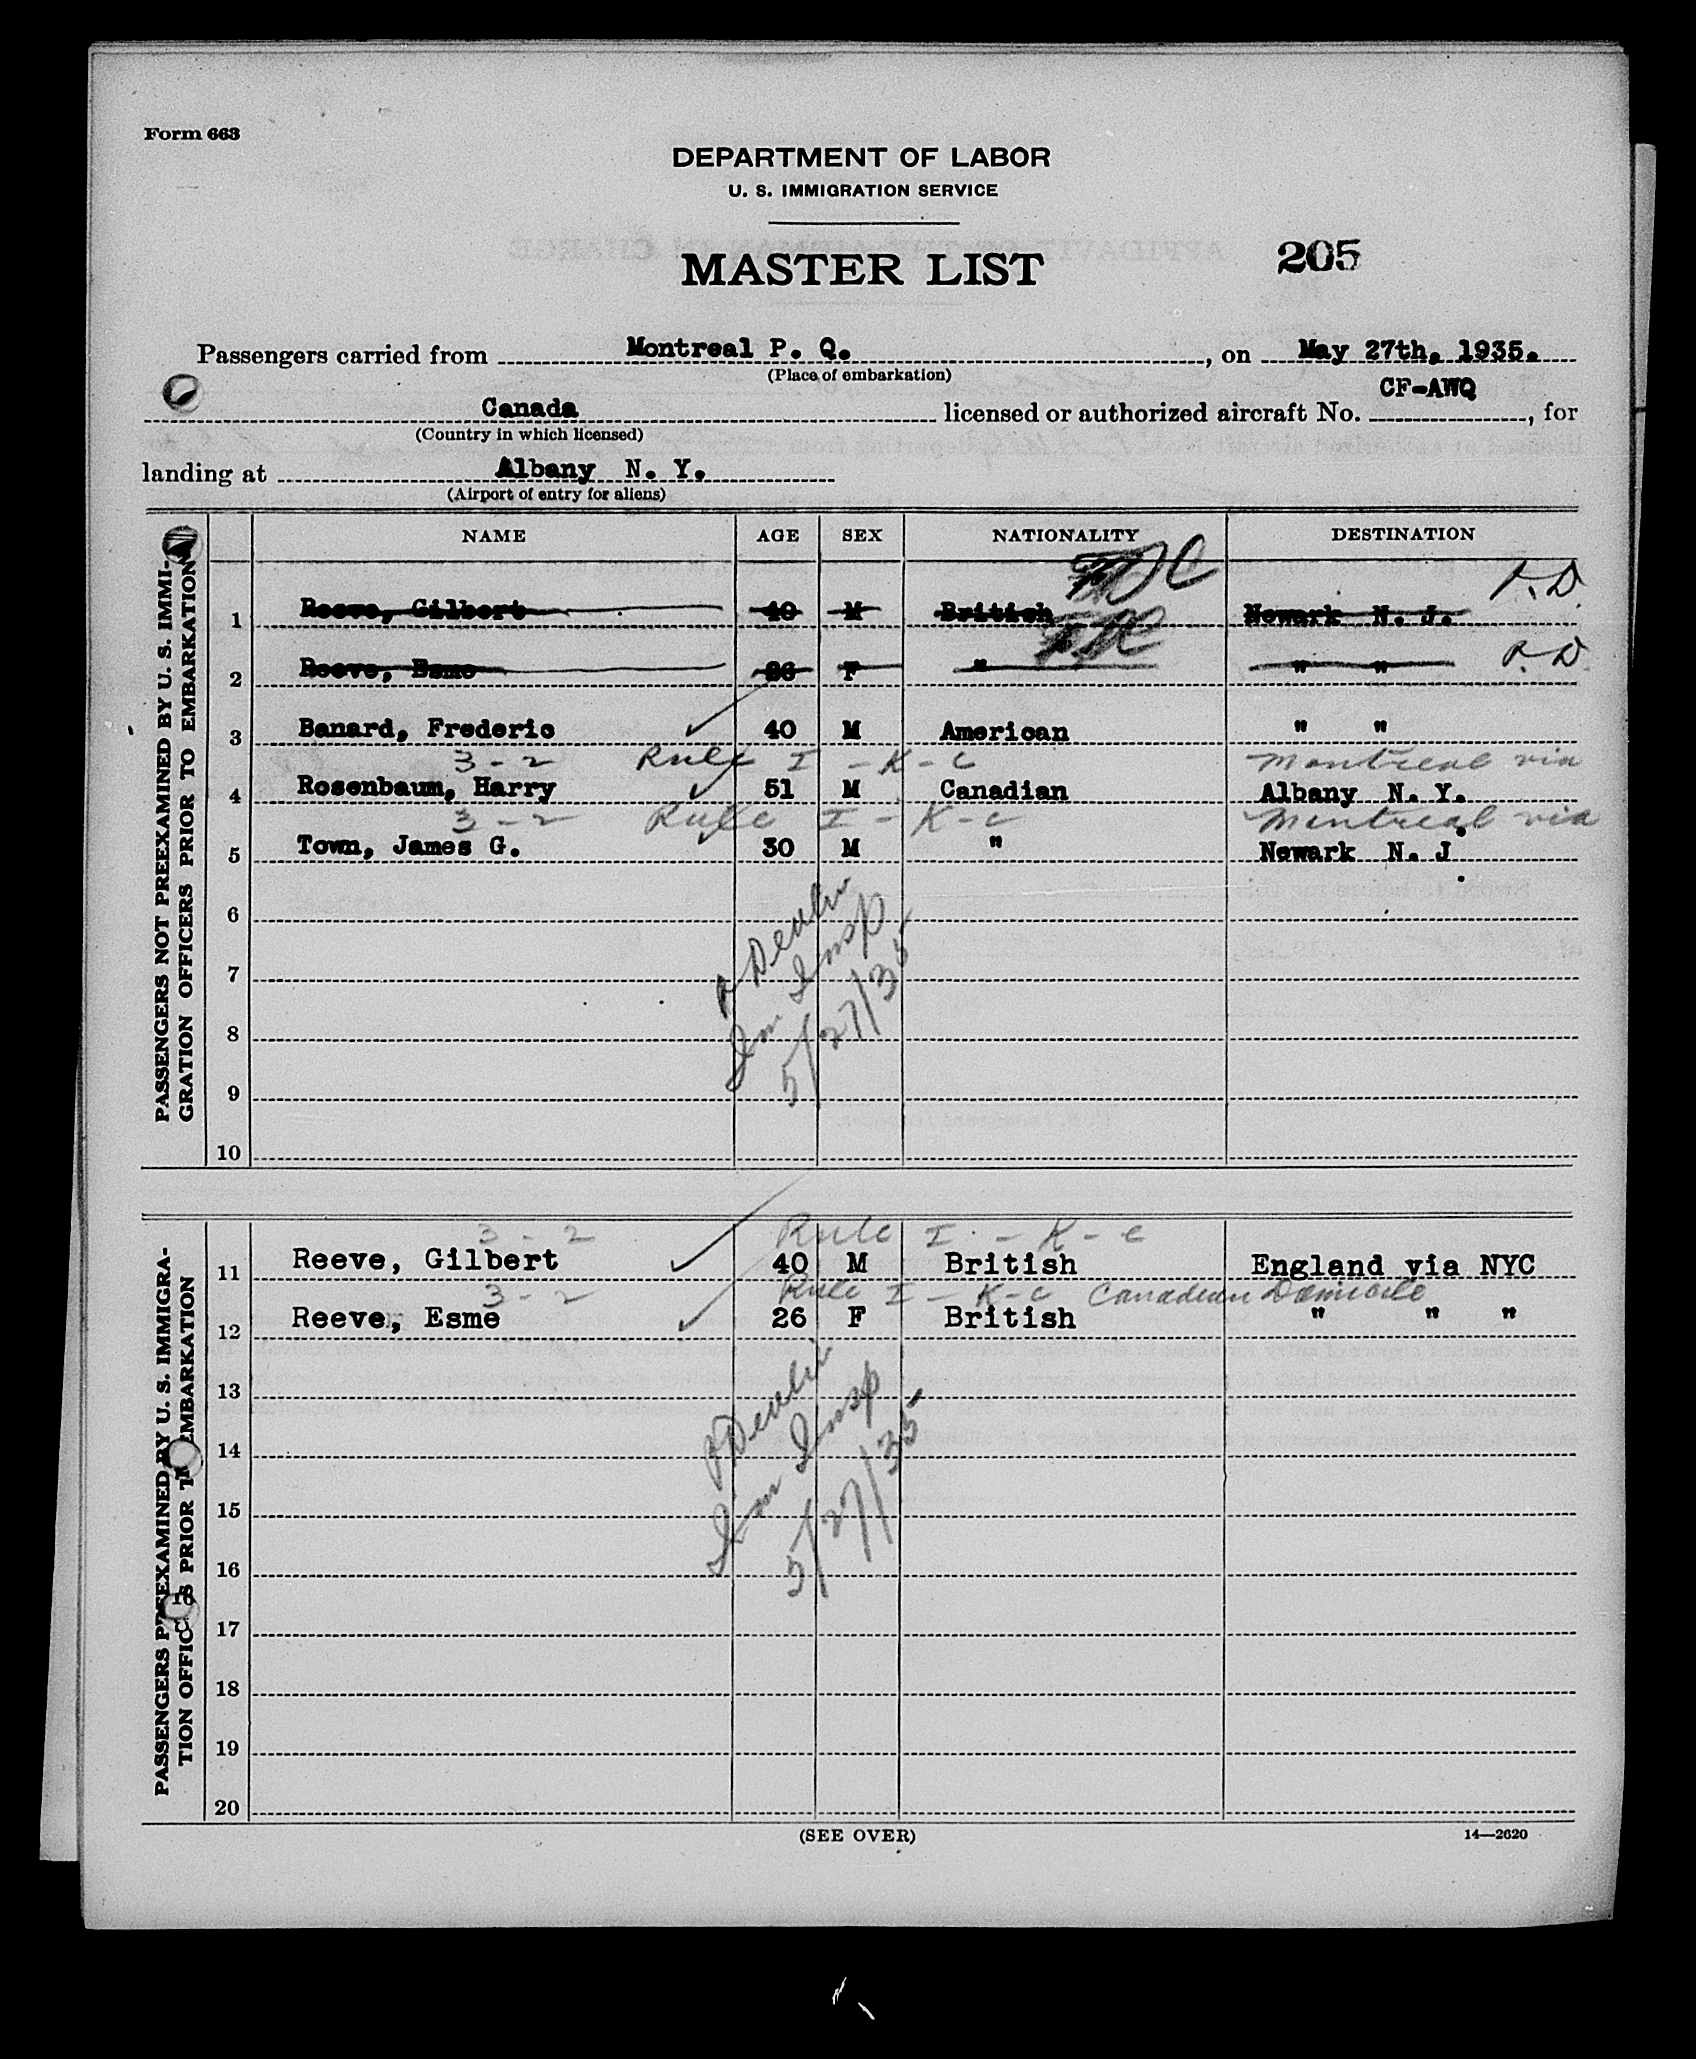 Form 663
DEPARTMENT OF LABOR
U. S. IMMIGRATION SERVICE
MASTER LIST
205
Passengers carried from Montreal P. Q., on May 27th, 1935.
(Place of embarkation)
CF-AWQ
Canada licensed or authorized aircraft No. , for
(Country in which licensed)
landing at Albany N. Y.
(Airport of entry for aliens)
PASSENGERS NOT PREEXAMINED BY U. S. IMMI-
GRATION OFFICERS PRIOR TO EMBARKATION
NAME AGE SEX NATIONALITY DESTINATION
1 Reeve, Gilbert 40 M British Newark N. J.
2 Reeve, Esme 26 F " " "
3 Banard, Frederic 40 M American " "
3-2 Rule I-K-c Montreal via
4 Rosenbaum, Harry 51 M Canadian Albany N. Y.
3-2 Rule I-K-c Montreal via
5 Town, James G. 30 M " Newark N. J.
6
7
8
9
10
Imm Insp
5/27/35
PASSENGERS PREEXAMINED BY U. S. IMMIGRA-
TION OFFICERS PRIOR TO EMBARKATION
3-2 Rule I-K-c
11 Reeve, Gilbert 40 M British England via NYC
3-2 Rule I-K-c Canadian Domicile
12 Reeve, Esme 26 F British " " "
13
14
15
16
17
18
19
20
Imm Insp
5/27/35
(SEE OVER)
14—2620